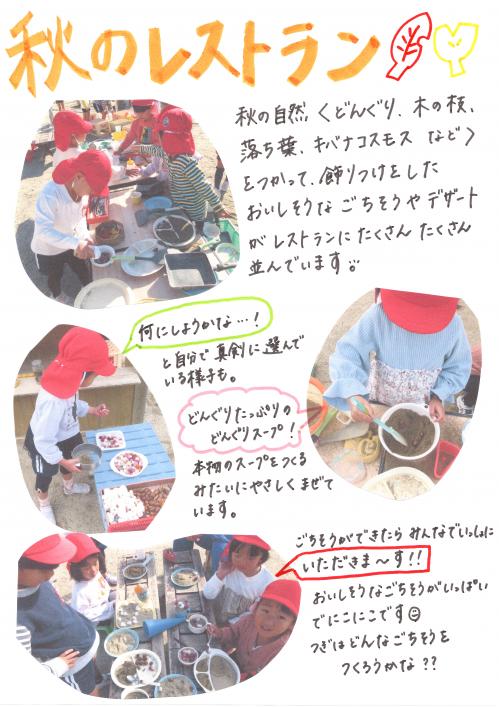 秋のレストラン
秋の自然く どんぐり、木の枝、
落ち葉、キバナコスモス など〉
をつかって、飾りつけをした
おいしそうな ごちそうや デザート
が レストランに たくさん たくさん
並んでいます
何にしようかな…!
と自分で 真剣に 選んで
いる様子も。
どんぐりたっぷりの
どんぐりスープ!
本物のスープをつくる
みたいにやさしく まぜて
います。
ごちそうができたら みんなでいっしょに
いただきま〜す!!
おいしそうなごちそうがいっぱい
でにこにこです☺
つぎはどんなごちそうを
つくろうかな??